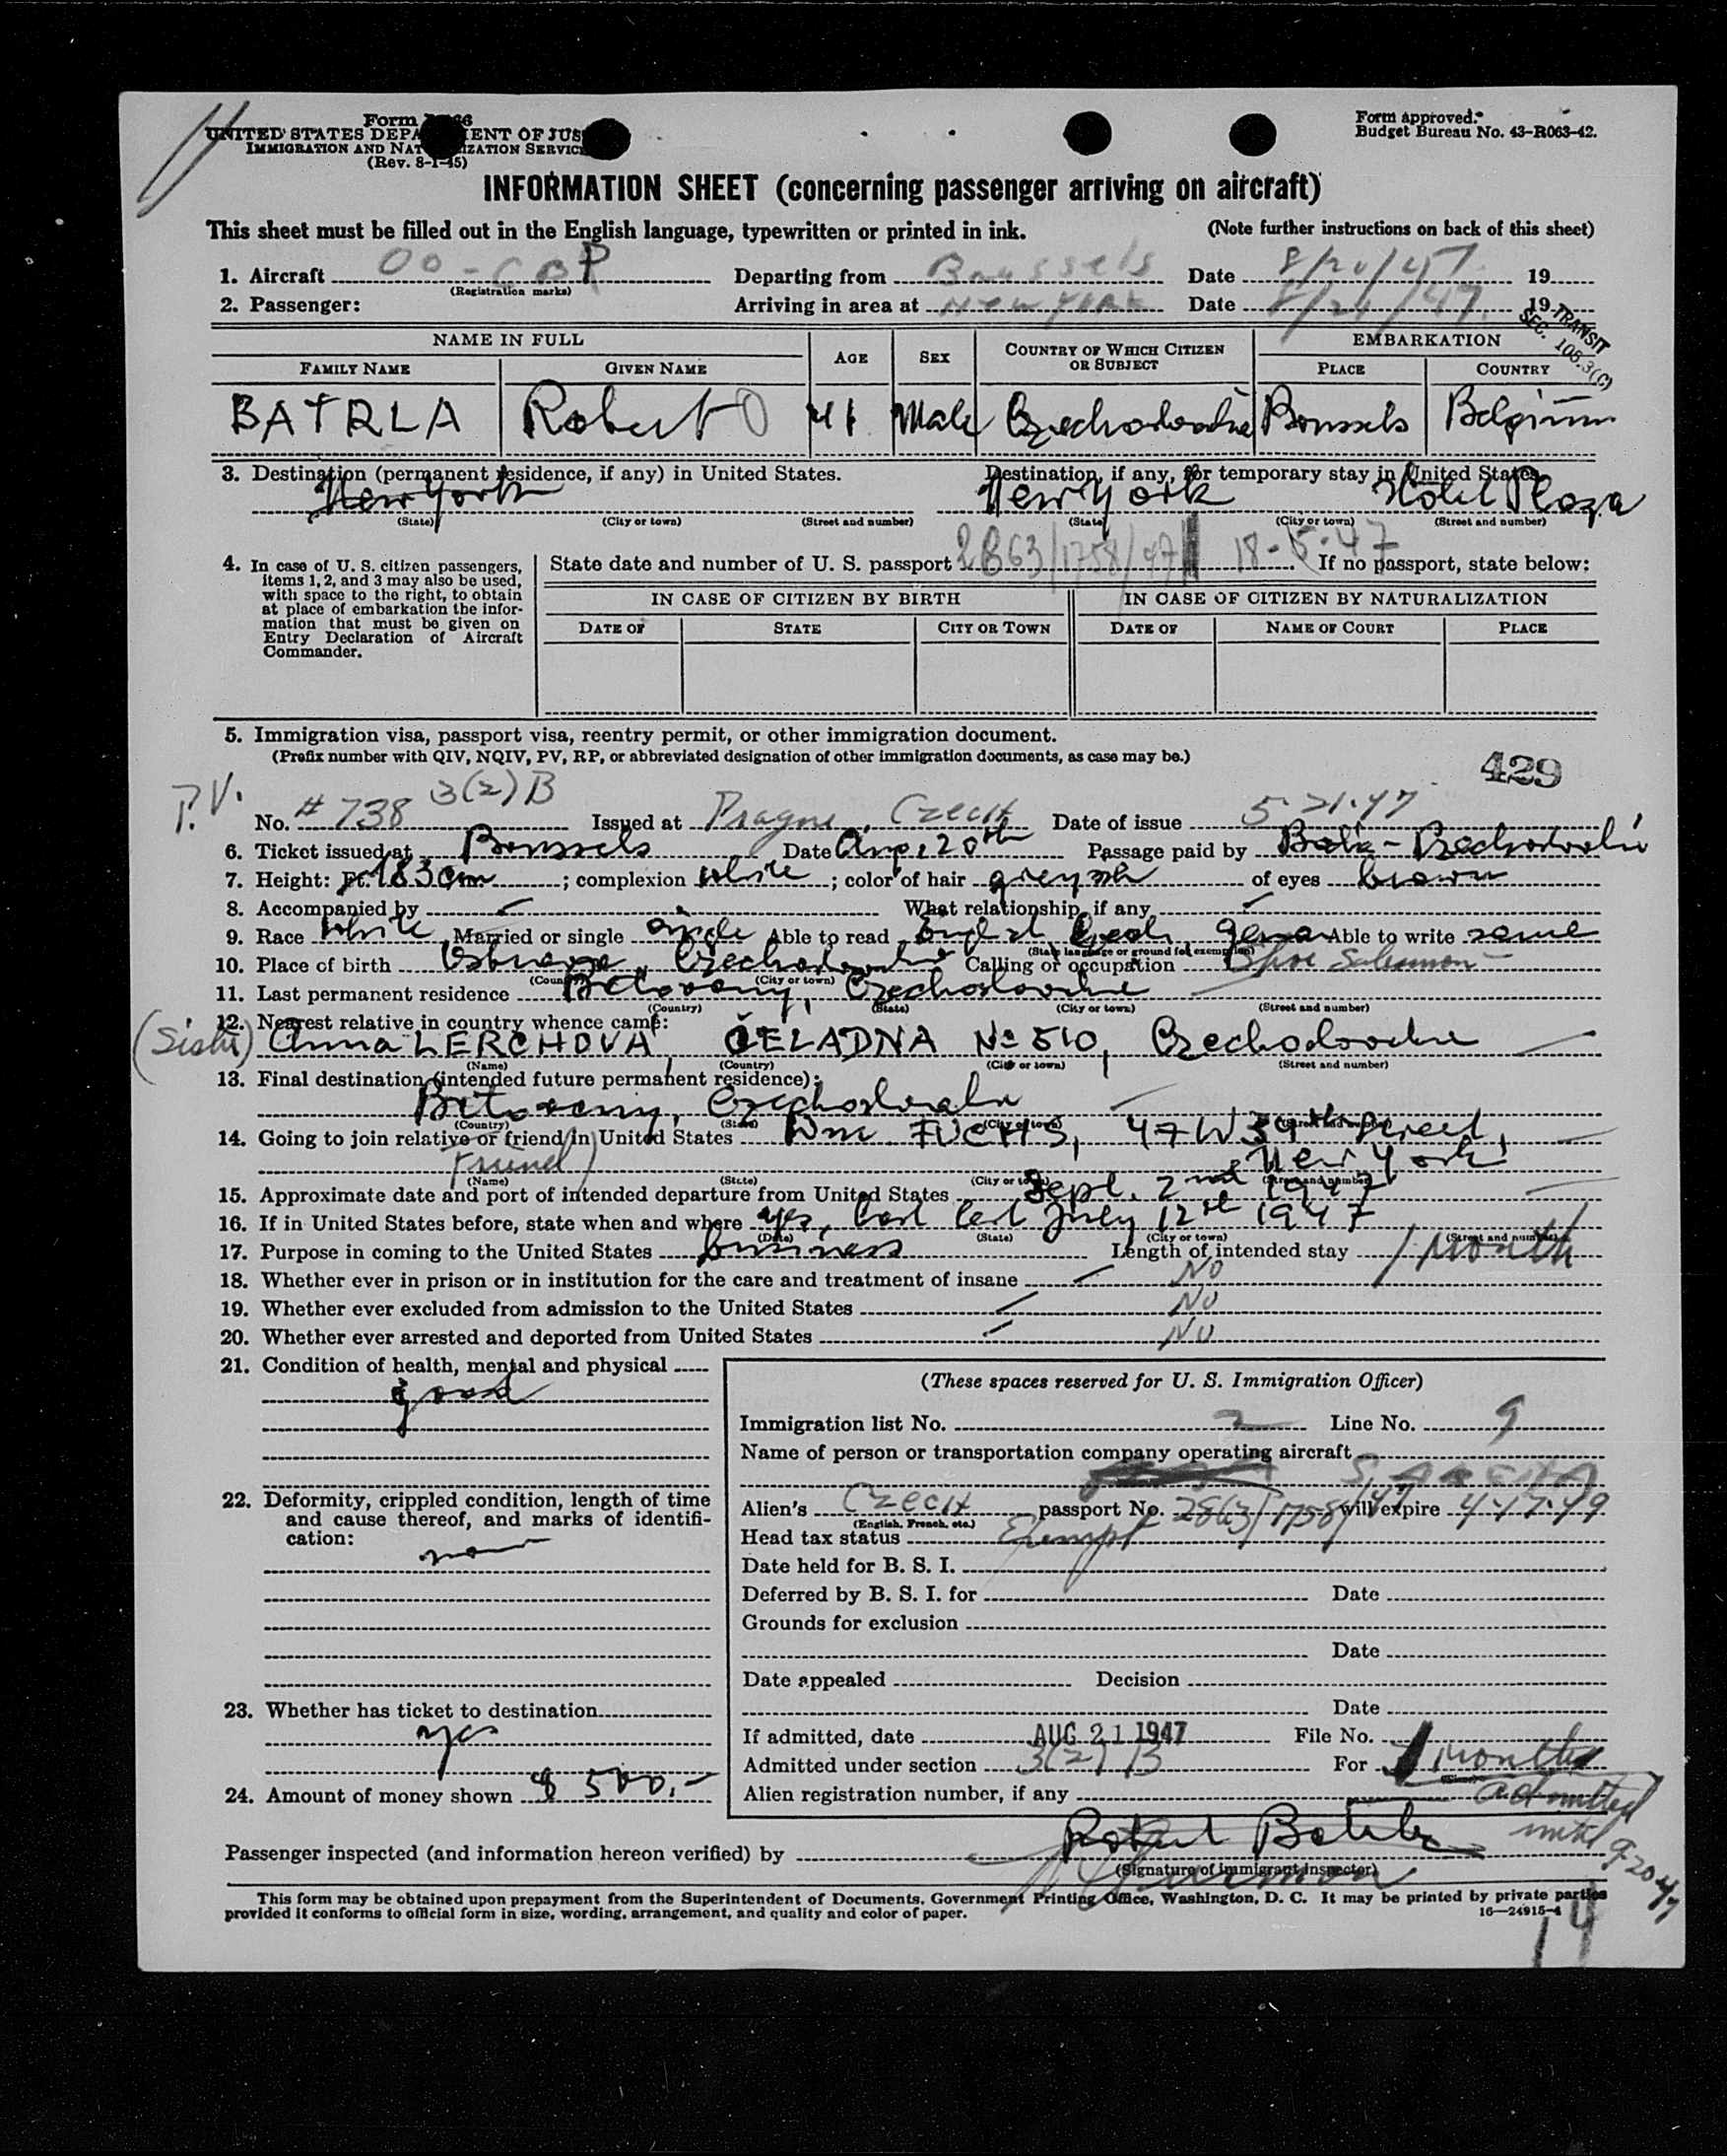 Form
UNITED STATES DEPA ENT OF JUS
IMMIGRATION AND NAT IZATION SERVIC
(Rev. 8-1-45)
Form Approved.
Budget Bureau No. 43-R063-42.
INFORMATION SHEET (concerning passenger arriving on aircraft)
This sheet must be filled out in the English language, typewritten or printed in ink. (Note further instructions on back of this sheet)
1. Aircraft OO-CBP Departing from Brussels Date 8/20/47 19
(Registration marks)
2. Passenger: Arriving in area at NEW YORK Date 8/21/47 19
TRANSIT
SEC. 105.3(C)
NAME IN FULL AGE SEX COUNTRY OF WHICH CITIZEN OR SUBJECT EMBARKATION
FAMILY NAME GIVEN NAME PLACE COUNTRY
BATRLA Robert O 41 Male Czechoslovakia Brussels Belgium
3. Destination (permanent residence, if any) in United States. Destination, if any, for temporary stay in United States
New York New York Hotel Plaza
(State) (City or town) (Street and number) (State) (City or town) (Street and number)
4. In case of U. S. citizen passengers, items 1, 2, and 3 may also be used, with space to the right, to obtain at place of embarkation the information that must be given on Entry Declaration of Aircraft Commander.
State date and number of U. S. passport 2863/1758/47 18-5-47 If no passport, state below:
IN CASE OF CITIZEN BY BIRTH IN CASE OF CITIZEN BY NATURALIZATION
DATE OF STATE CITY OR TOWN DATE OF NAME OF COURT PLACE
5. Immigration visa, passport visa, reentry permit, or other immigration document.
(Prefix number with QIV, NQIV, PV, RP, or abbreviated designation of other immigration documents, as case may be.)
429
P.V. No. # 738 3(2)B Issued at Prague, Czech Date of issue 5-21-47
6. Ticket issued at Brussels Date Aug. 20th Passage paid by Bata - Czechoslovakia
7. Height: Ft. 183 cm ; complexion white ; color of hair greyish of eyes brown
8. Accompanied by What relationship, if any
9. Race white Married or single single Able to read English Czech German Able to write same
(State language or ground for exemption)
10. Place of birth Ostrava, Czechoslovakia Calling or occupation Shoe Salesman
(Country) (City or town)
11. Last permanent residence Czechoslovakia
(Country) (State) (City or town) (Street and number)
12. Nearest relative in country whence came:
(Sister) Anna LERCHOVA, ČELADNA No 510, Czechoslovakia
(Name) (Country) (City or town) (Street and number)
13. Final destination (intended future permanent residence):
Czechoslovakia
(Country) (State) (City or town) (Street and number)
14. Going to join relative or friend in United States Wm FUCHS, 47 W 39th Street,
(Friend) New York
(Name) (State) (City or town) (Street and number)
15. Approximate date and port of intended departure from United States Sept. 2nd 1947
16. If in United States before, state when and where yes, last July 12th 1947
(Date) (State) (City or town) (Street and number)
17. Purpose in coming to the United States business Length of intended stay 1 Month
18. Whether ever in prison or in institution for the care and treatment of insane No
19. Whether ever excluded from admission to the United States No
20. Whether ever arrested and deported from United States No
21. Condition of health, mental and physical
good
22. Deformity, crippled condition, length of time and cause thereof, and marks of identification:
23. Whether has ticket to destination
yes
24. Amount of money shown $ 500.-
(These spaces reserved for U. S. Immigration Officer)
Immigration list No. 2 Line No. 9
Name of person or transportation company operating aircraft
SABENA
Alien's Czech passport No. 2863/1758/47 will expire 4-17-49
(English, French, etc.)
Head tax status Exempt
Date held for B. S. I.
Deferred by B. S. I. for Date
Grounds for exclusion
Date
Date appealed Decision
Date
If admitted, date AUG 21 1947 File No.
Admitted under section 3(2) B For 1 months
(Time)
Alien registration number, if any
admitted until 9-20-47
Robert Batrla
Passenger inspected (and information hereon verified) by
(Signature of immigrant inspector)
This form may be obtained upon prepayment from the Superintendent of Documents, Government Printing Office, Washington, D. C. It may be printed by private parties
provided it conforms to official form in size, wording, arrangement, and quality and color of paper. 16—24915-1
14